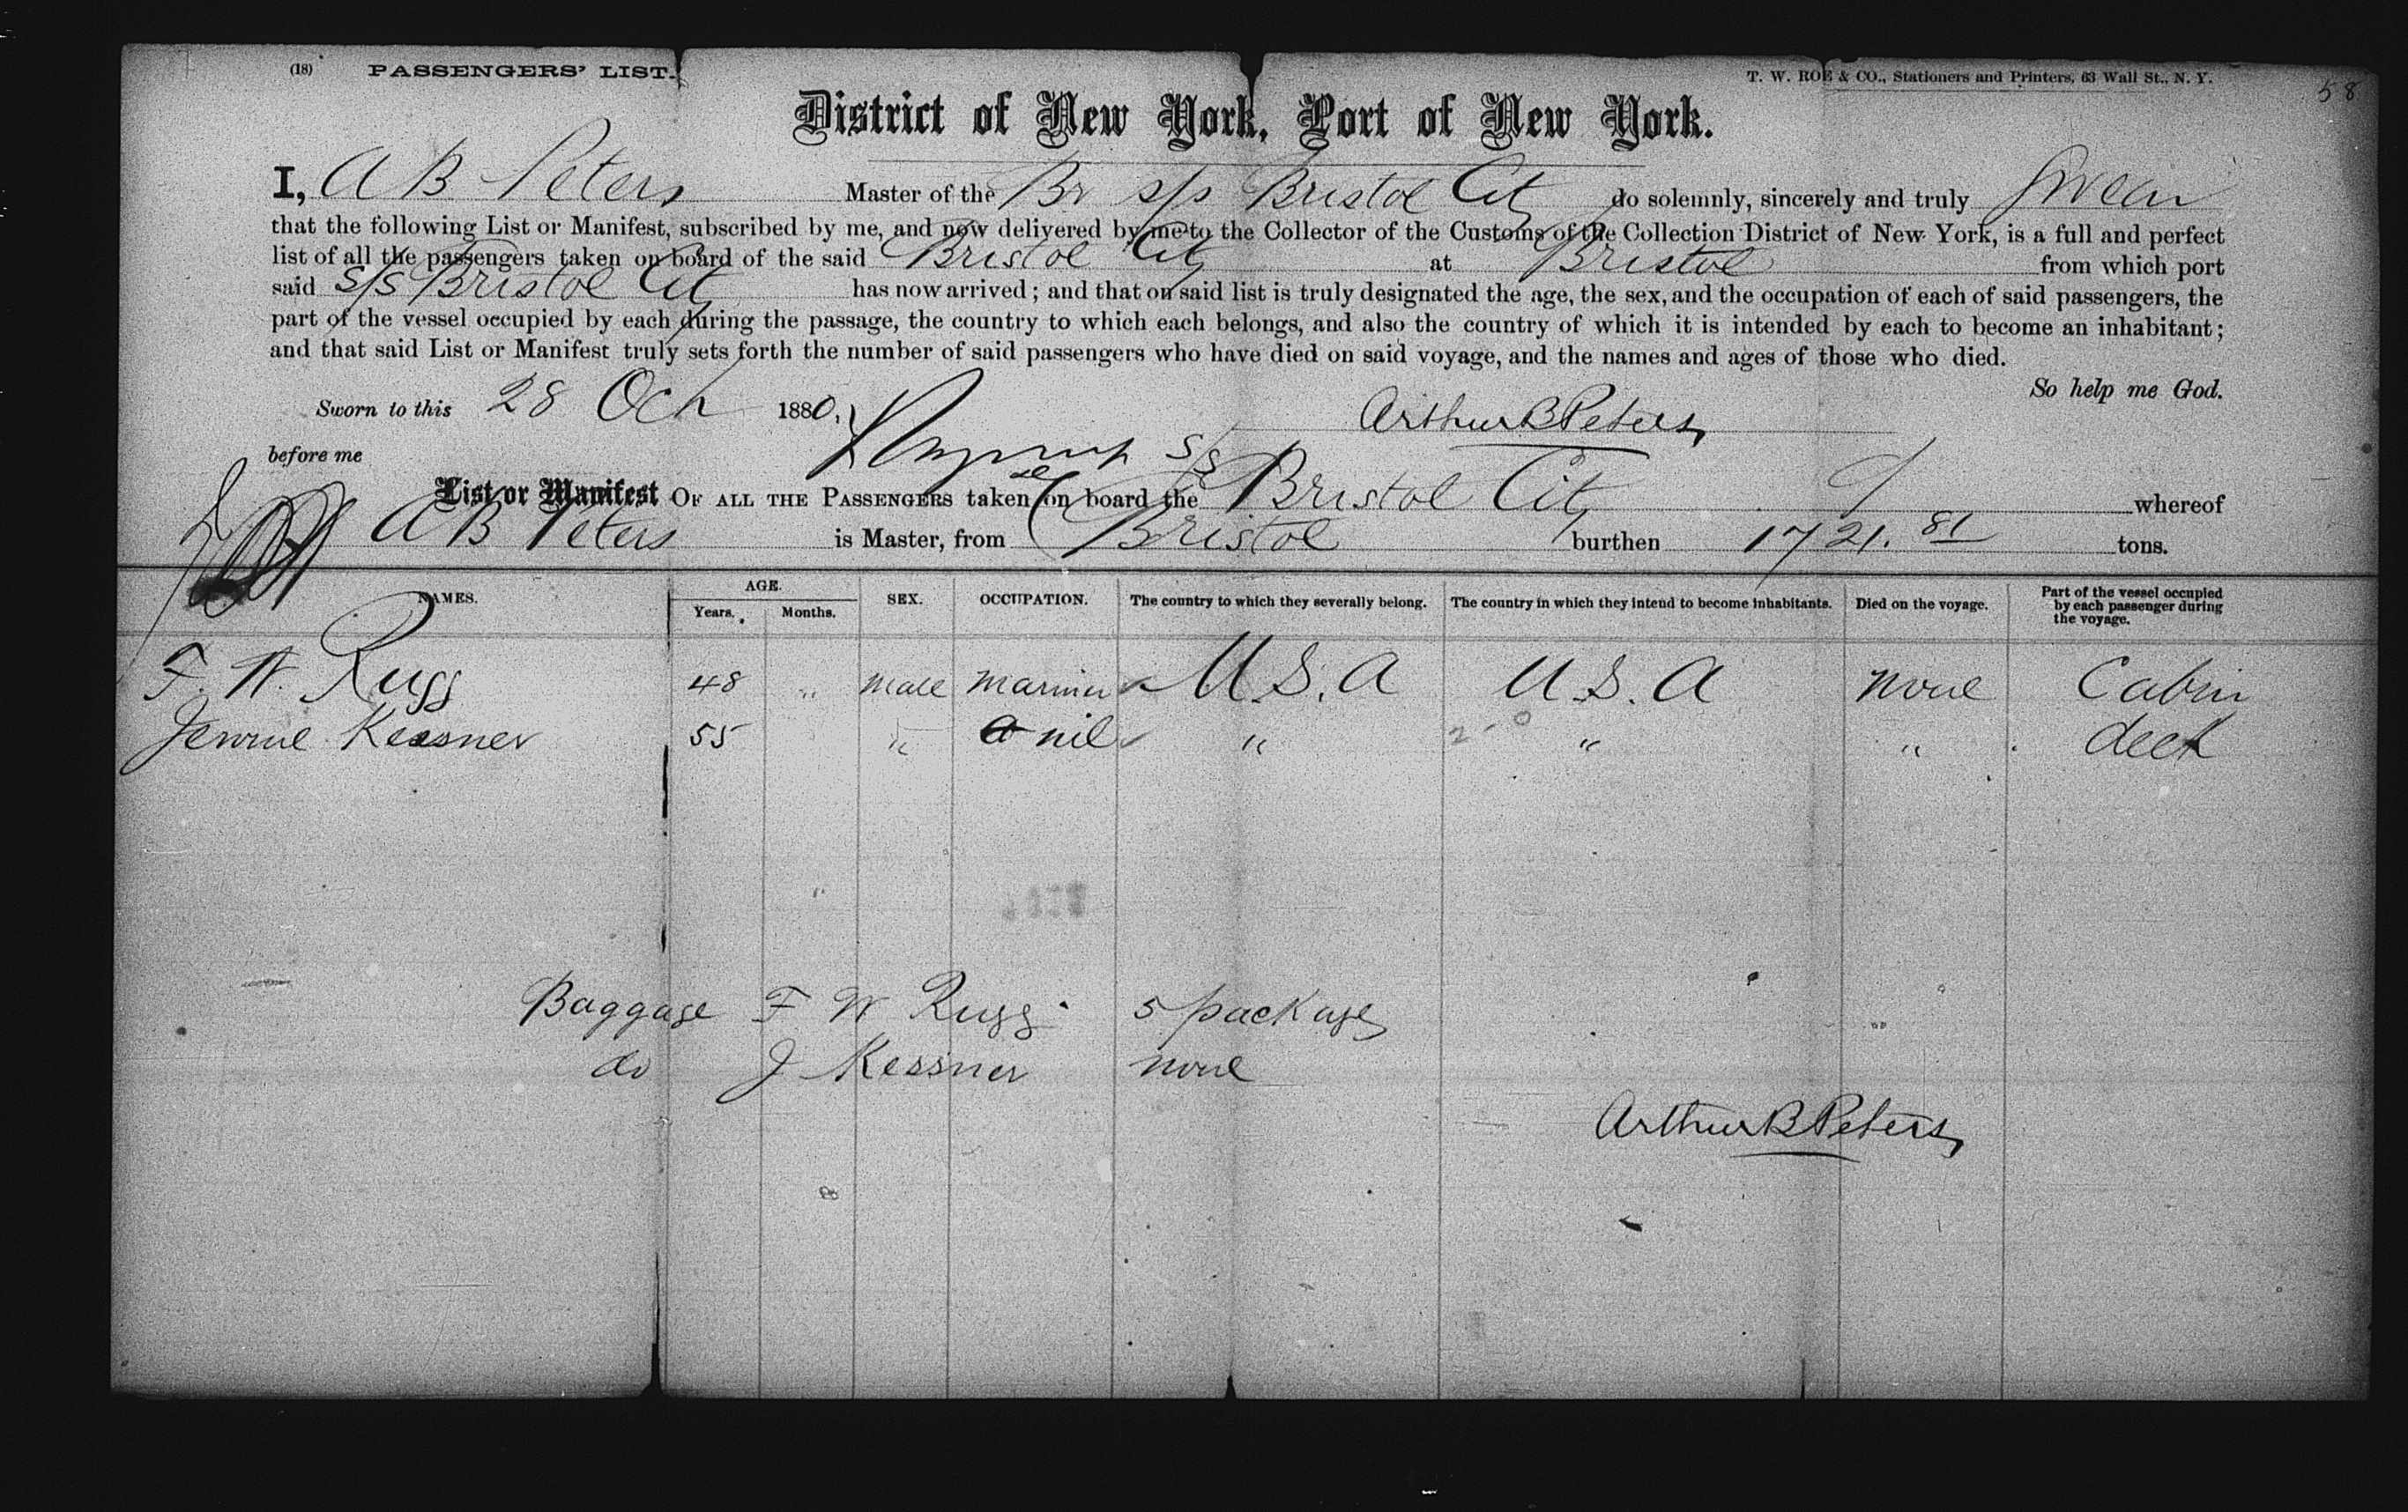 (18) PASSENGERS' LIST. T. W. ROE & CO., Stationers and Printers, 63 Wall St., N. Y. 58
District of New York, Port of New York.
I, A B Peters Master of the Br s/s Bristol City do solemnly, sincerely and truly swear
that the following List or Manifest, subscribed by me, and now delivered by me to the Collector of the Customs of the Collection District of New York, is a full and perfect
list of all the passengers taken on board of the said Bristol City at Bristol from which port
said S/S Bristol City has now arrived; and that on said list is truly designated the age, the sex, and the occupation of each of said passengers, the
part of the vessel occupied by each during the passage, the country to which each belongs, and also the country of which it is intended by each to become an inhabitant;
and that said List or Manifest truly sets forth the number of said passengers who have died on said voyage, and the names and ages of those who died.
So help me God.
Sworn to this 28 Oct 1880, Arthur B Peters
before me
List or Manifest OF ALL THE PASSENGERS taken on board the S/S Bristol City whereof
A B Peters is Master, from Bristol burthen 1721. 81 tons.
NAMES. AGE. Years. Months. SEX. OCCUPATION. The country to which they severally belong. The country in which they intend to become inhabitants. Died on the voyage. Part of the vessel occupied by each passenger during the voyage.
F. W. Rugg 48 " male mariner U.S.A U.S.A none Cabin
Kessner 55 " nil " " " deck
Baggage F W Rugg 5 packages
do J Kessner none
Arthur B Peters